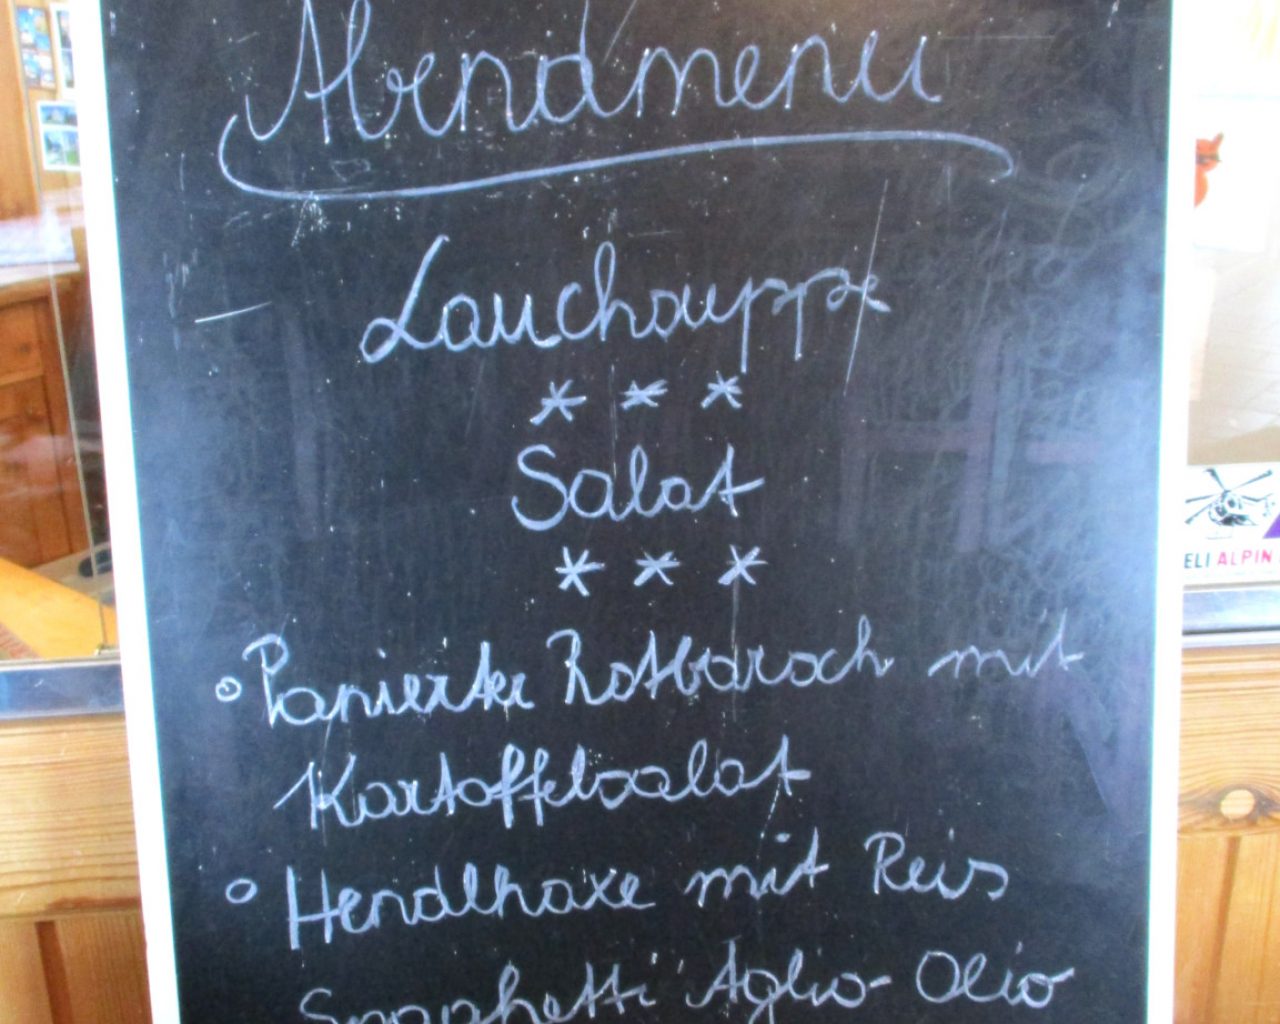 Abendmenu
Lauchsuppe
* * *
Salat
* * *
Panierter Rotbarsch mit
Kartoffelsalat
Hendlhaxe mit Reis
Spaghetti Aglio-Olio
ELI ALPIN